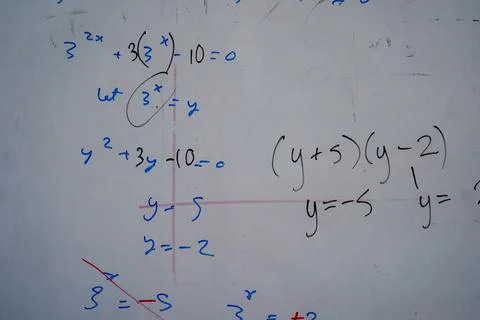 3^{2x} + 3(3^x) - 10 = 0
let 3^x = y
y^2 + 3y - 10 = 0
y = 5
y = -2
(y + 5)(y - 2)
y = -5 y =
3^x = -5
3^x = +2